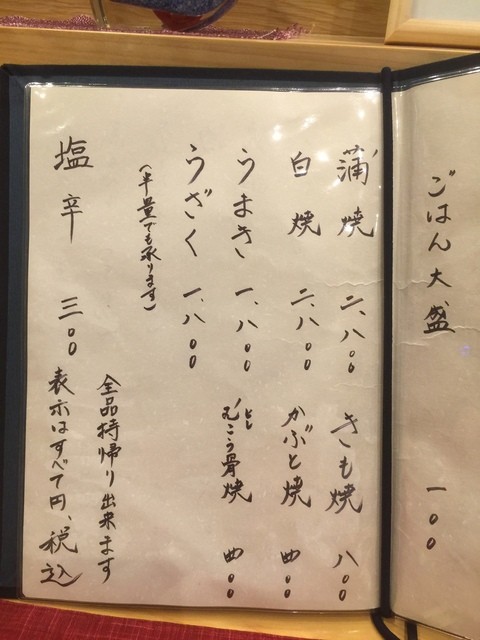 ごはん大盛 一〇〇
蒲焼 二、八〇〇
きも焼 八〇〇
白焼 二、八〇〇
かぶと焼 四〇〇
うまき 一、八〇〇
骨焼 四〇〇
うざく 一、八〇〇
(半量でも承ります)
塩辛 三〇〇
全品持帰り出来ます
表示はすべて円、税込